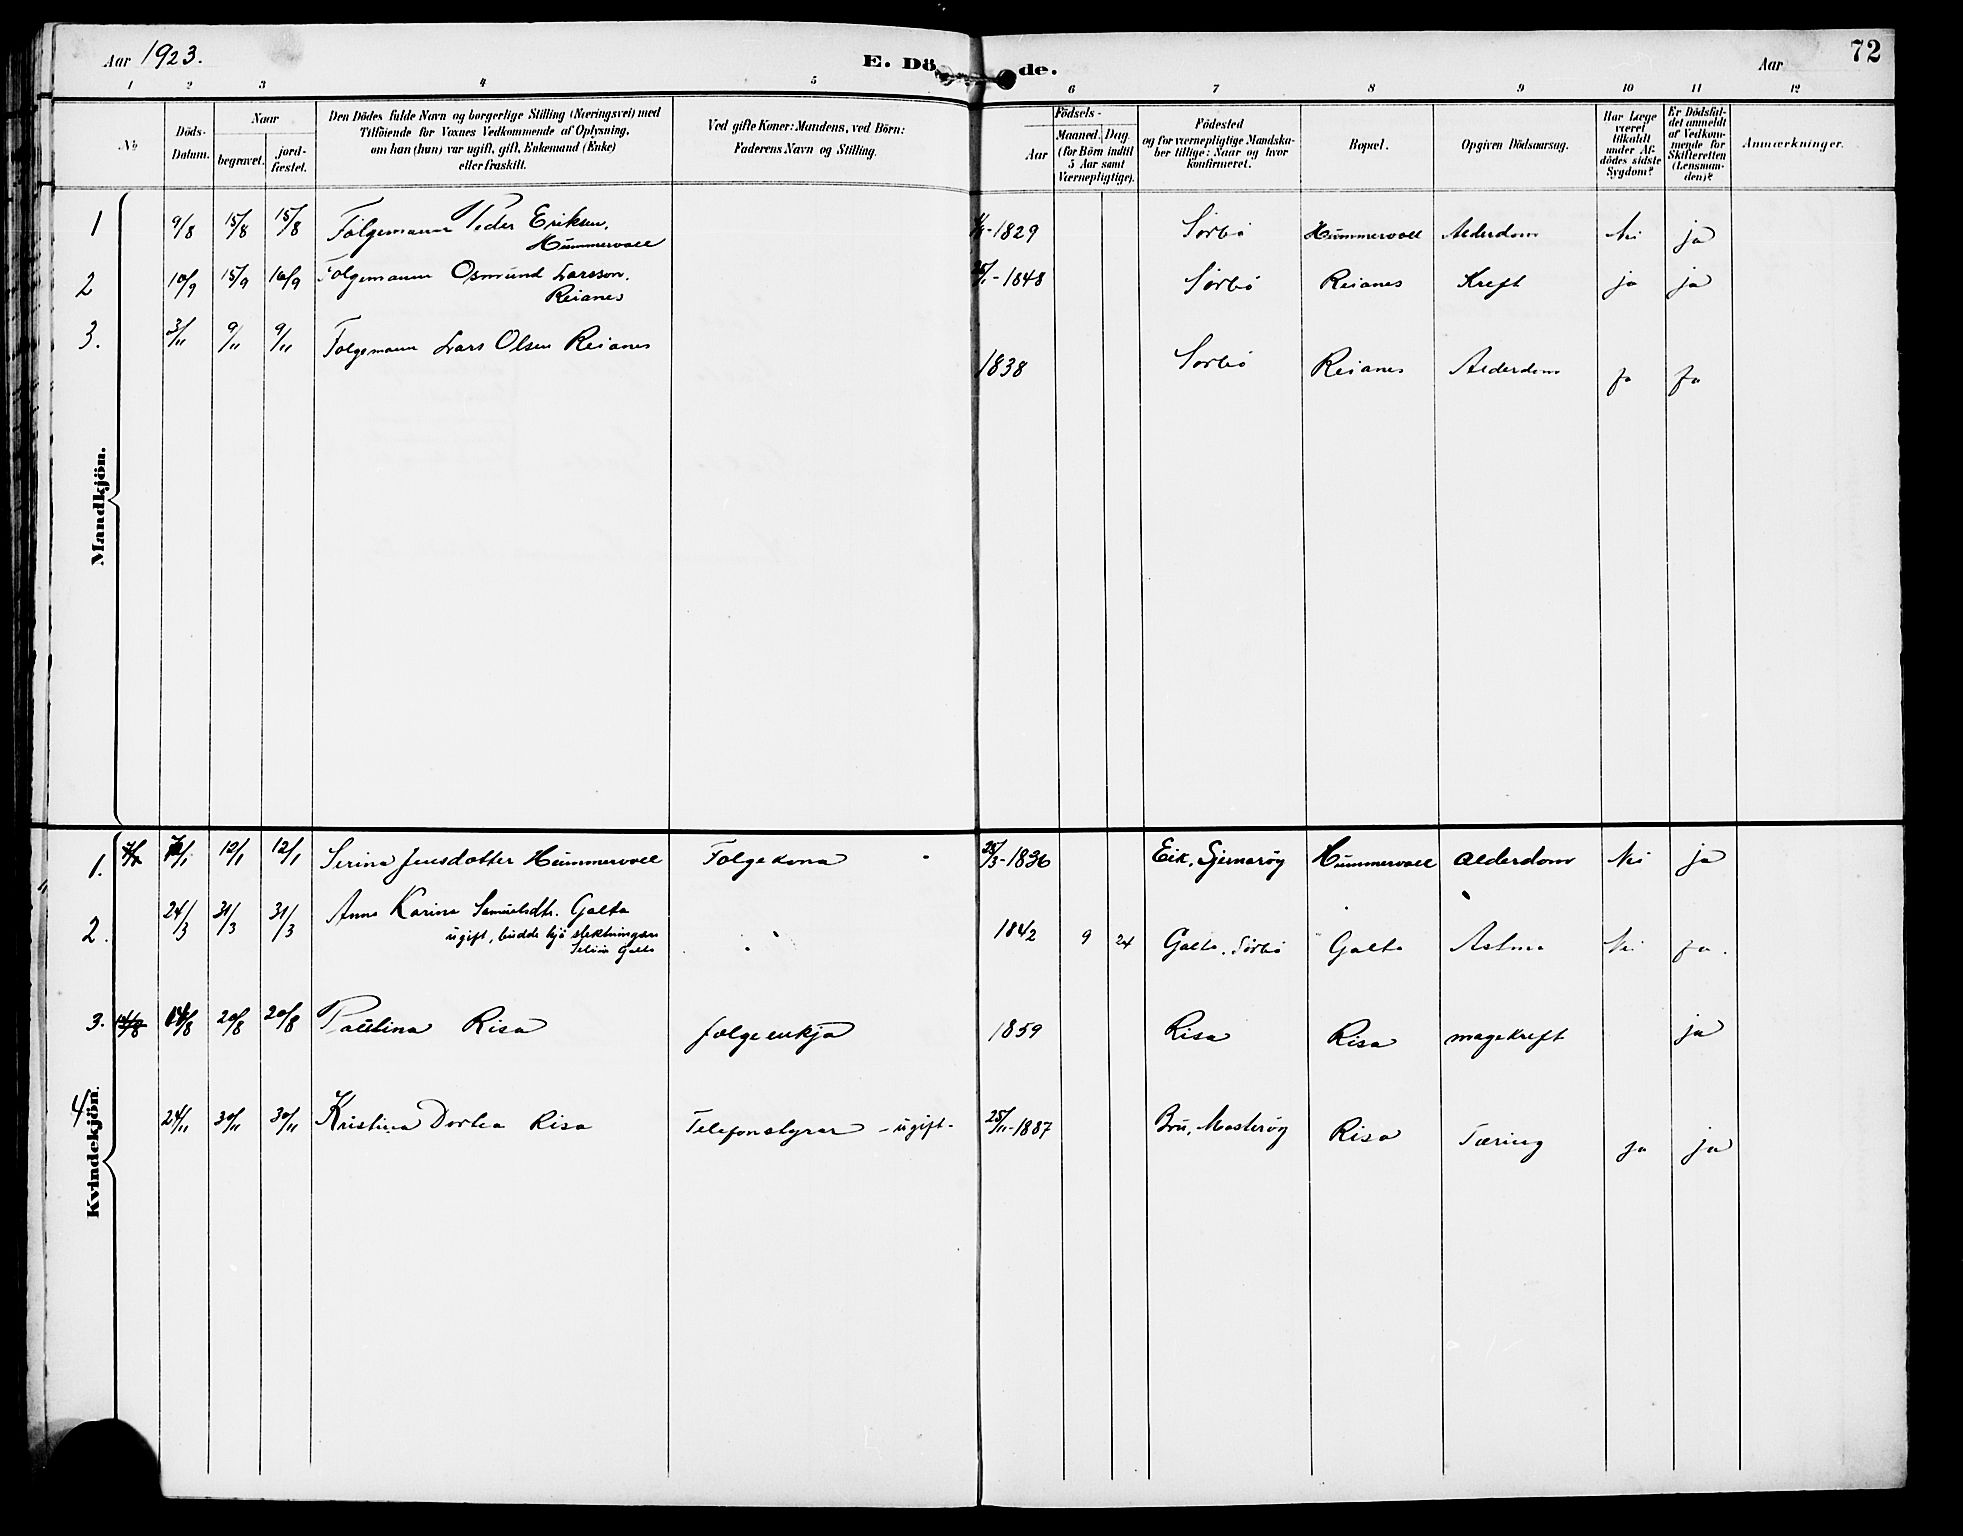 Aar 1923.
E. Dö de.
Aar
72
1 2 3 4 5 6 7 8 9 10 11 12
No
Döds-Datum.
Naar
begravet.
jord-fæstet.
Den Dödes fulde Navn og borgerlige Stilling (Næringsvei) med
Tilföiende for Voxnes Vedkommende af Oplysning,
om han (hun) var ugift, gift, Enkemand (Enke)
eller fraskilt.
Ved gifte Koner: Mandens, ved Börn:
Faderens Navn og Stilling.
Födsels-
Aar
Maaned. Dag.
(for Börn indtil
5 Aar samt
Værnepligtige).
Födested
og for værnepligtige Mandska-
ber tillige: Naar og hvor
konfirmeret.
Bopæl.
Opgiven Dödsaarsag.
Har Læge
været
tilkaldt
under Af-
dödes sidste
Sygdom?
Er Dödsfal-
det anmeldt
af Vedkom-
mende for
Skifteretten
(Lensman-
den)?
Anmærkninger.
Mandkjön.
1 9/8 15/8 15/8 Folgemann Peder Eriksen, 1829 Sørbø Hummervoll Alderdom Nei ja
Hummervoll
2 10/9 15/9 16/9 Folgemann Osmund Larsson. 1848 Sørbø Reianes Kreft ja ja
Reianes
3. 3/11 9/11 9/11 Folgemann Lars Olsen Reianes 1838 Sørbø Reianes Alderdom ja ja
Kvindekjön.
1. 7/1 12/1 12/1 Serina Jensdotter Hummervoll Folgekona 25/3-1836 Eik, Sjernarøy Hummervoll alderdom Nei ja
2. 24/3 31/3 31/3 Anna Karina Samuelsdtr. Galta 1842 9 24 Galta, Sørbø Galta Astma Nei ja.
ugift, budde hjå slektningen
Galta
3. 14/8 14/8 20/8 20/8 Paulina Risa folgeenkja 1859 Risa Risa magekreft ja
4 24/11 30/11 30/11 Kristina Dortea Risa Telefonstyrar - ugift- 25/11-1887 Bru, Mosterøy Risa Tæring ja ja